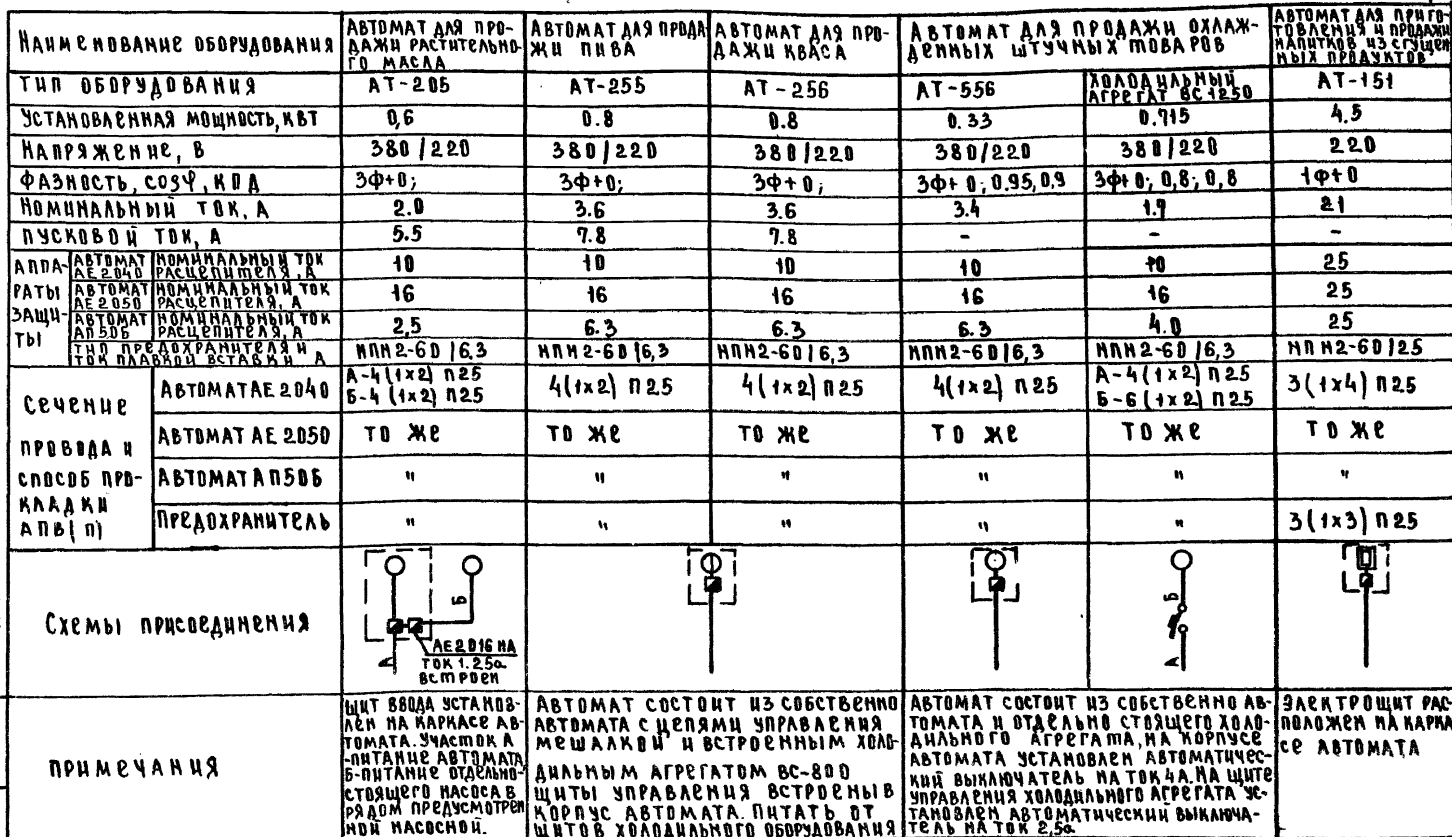 Наименование оборудования
Автомат для про-
дажи растительно-
го масла
Автомат для прода
жи пива
Автомат для про-
дажи кваса
Автомат для продажи охлаж-
денных штучных товаров
Автомат для приго-
товления и продажи
напитков из сгущен
ных продуктов
Тип оборудования
АТ-205
АТ-255
АТ-256
АТ-556
Холодильный
агрегат ВС 1250
АТ-151
Установленная мощность, кВт
0,6
0.8
0.8
0.33
0.715
4.5
Напряжение, В
380/220
380/220
380/220
380/220
380/220
220
Фазность, cosφ, КПД
3Ф+0;
3Ф+0;
3Ф+0;
3Ф+0; 0.95, 0,9
3Ф+0; 0,8; 0,8
1Ф+0
Номинальный ток, А
2.0
3.6
3.6
3.4
1.9
21
Пусковой ток, А
5.5
7.8
7.8
-
-
-
Аппа-
раты
защи-
ты
Автомат АЕ2040
Номинальный ток расцепителя, А
10
10
10
10
10
25
Автомат АЕ2050
Номинальный ток расцепителя, А
16
16
16
16
16
25
Автомат АП50Б
Номинальный ток расцепителя, А
2,5
6.3
6.3
6.3
4.0
25
Тип предохранителя и
ток плавкой вставки А
НПН2-60/6,3
НПН2-60/6,3
НПН2-60/6,3
НПН2-60/6,3
НПН2-60/6,3
НПН2-60/25
Сечение
провода и
способ про-
кладки
АПВ(П)
Автомат АЕ 2040
А-4(1х2) П25
Б-4(1х2) П25
4(1х2) П25
4(1х2) П25
4(1х2) П25
А-4(1х2) П25
Б-6(1х2) П25
3(1х4) П25
Автомат АЕ 2050
То же
То же
То же
То же
То же
То же
Автомат АП50Б
"
"
"
"
"
"
Предохранитель
"
"
"
"
"
3(1х3) П25
Схемы присоединения
Б
А
АЕ2016 на
ток 1.25а
встроен
Б
А
Примечания
Щит ввода установ-
лен на каркасе ав-
томата. Участок А
-питание автомата
Б-питание отдельно-
стоящего насоса в
рядом предусмотрен
ной насосной.
Автомат состоит из собственно
автомата с цепями управления
мешалкой и встроенным холо-
дильным агрегатом ВС-800
Щиты управления встроены в
корпус автомата. Питать от
щитов холодильного оборудования
Автомат состоит из собственно ав-
томата и отдельно стоящего холо-
дильного агрегата, на корпусе
автомата установлен автоматичес-
кий выключатель на ток 4А. На щите
управления холодильного агрегата ус-
тановлен автоматический выключа-
тель на ток 2,5а
Электрощит рас
положен на карка
се автомата